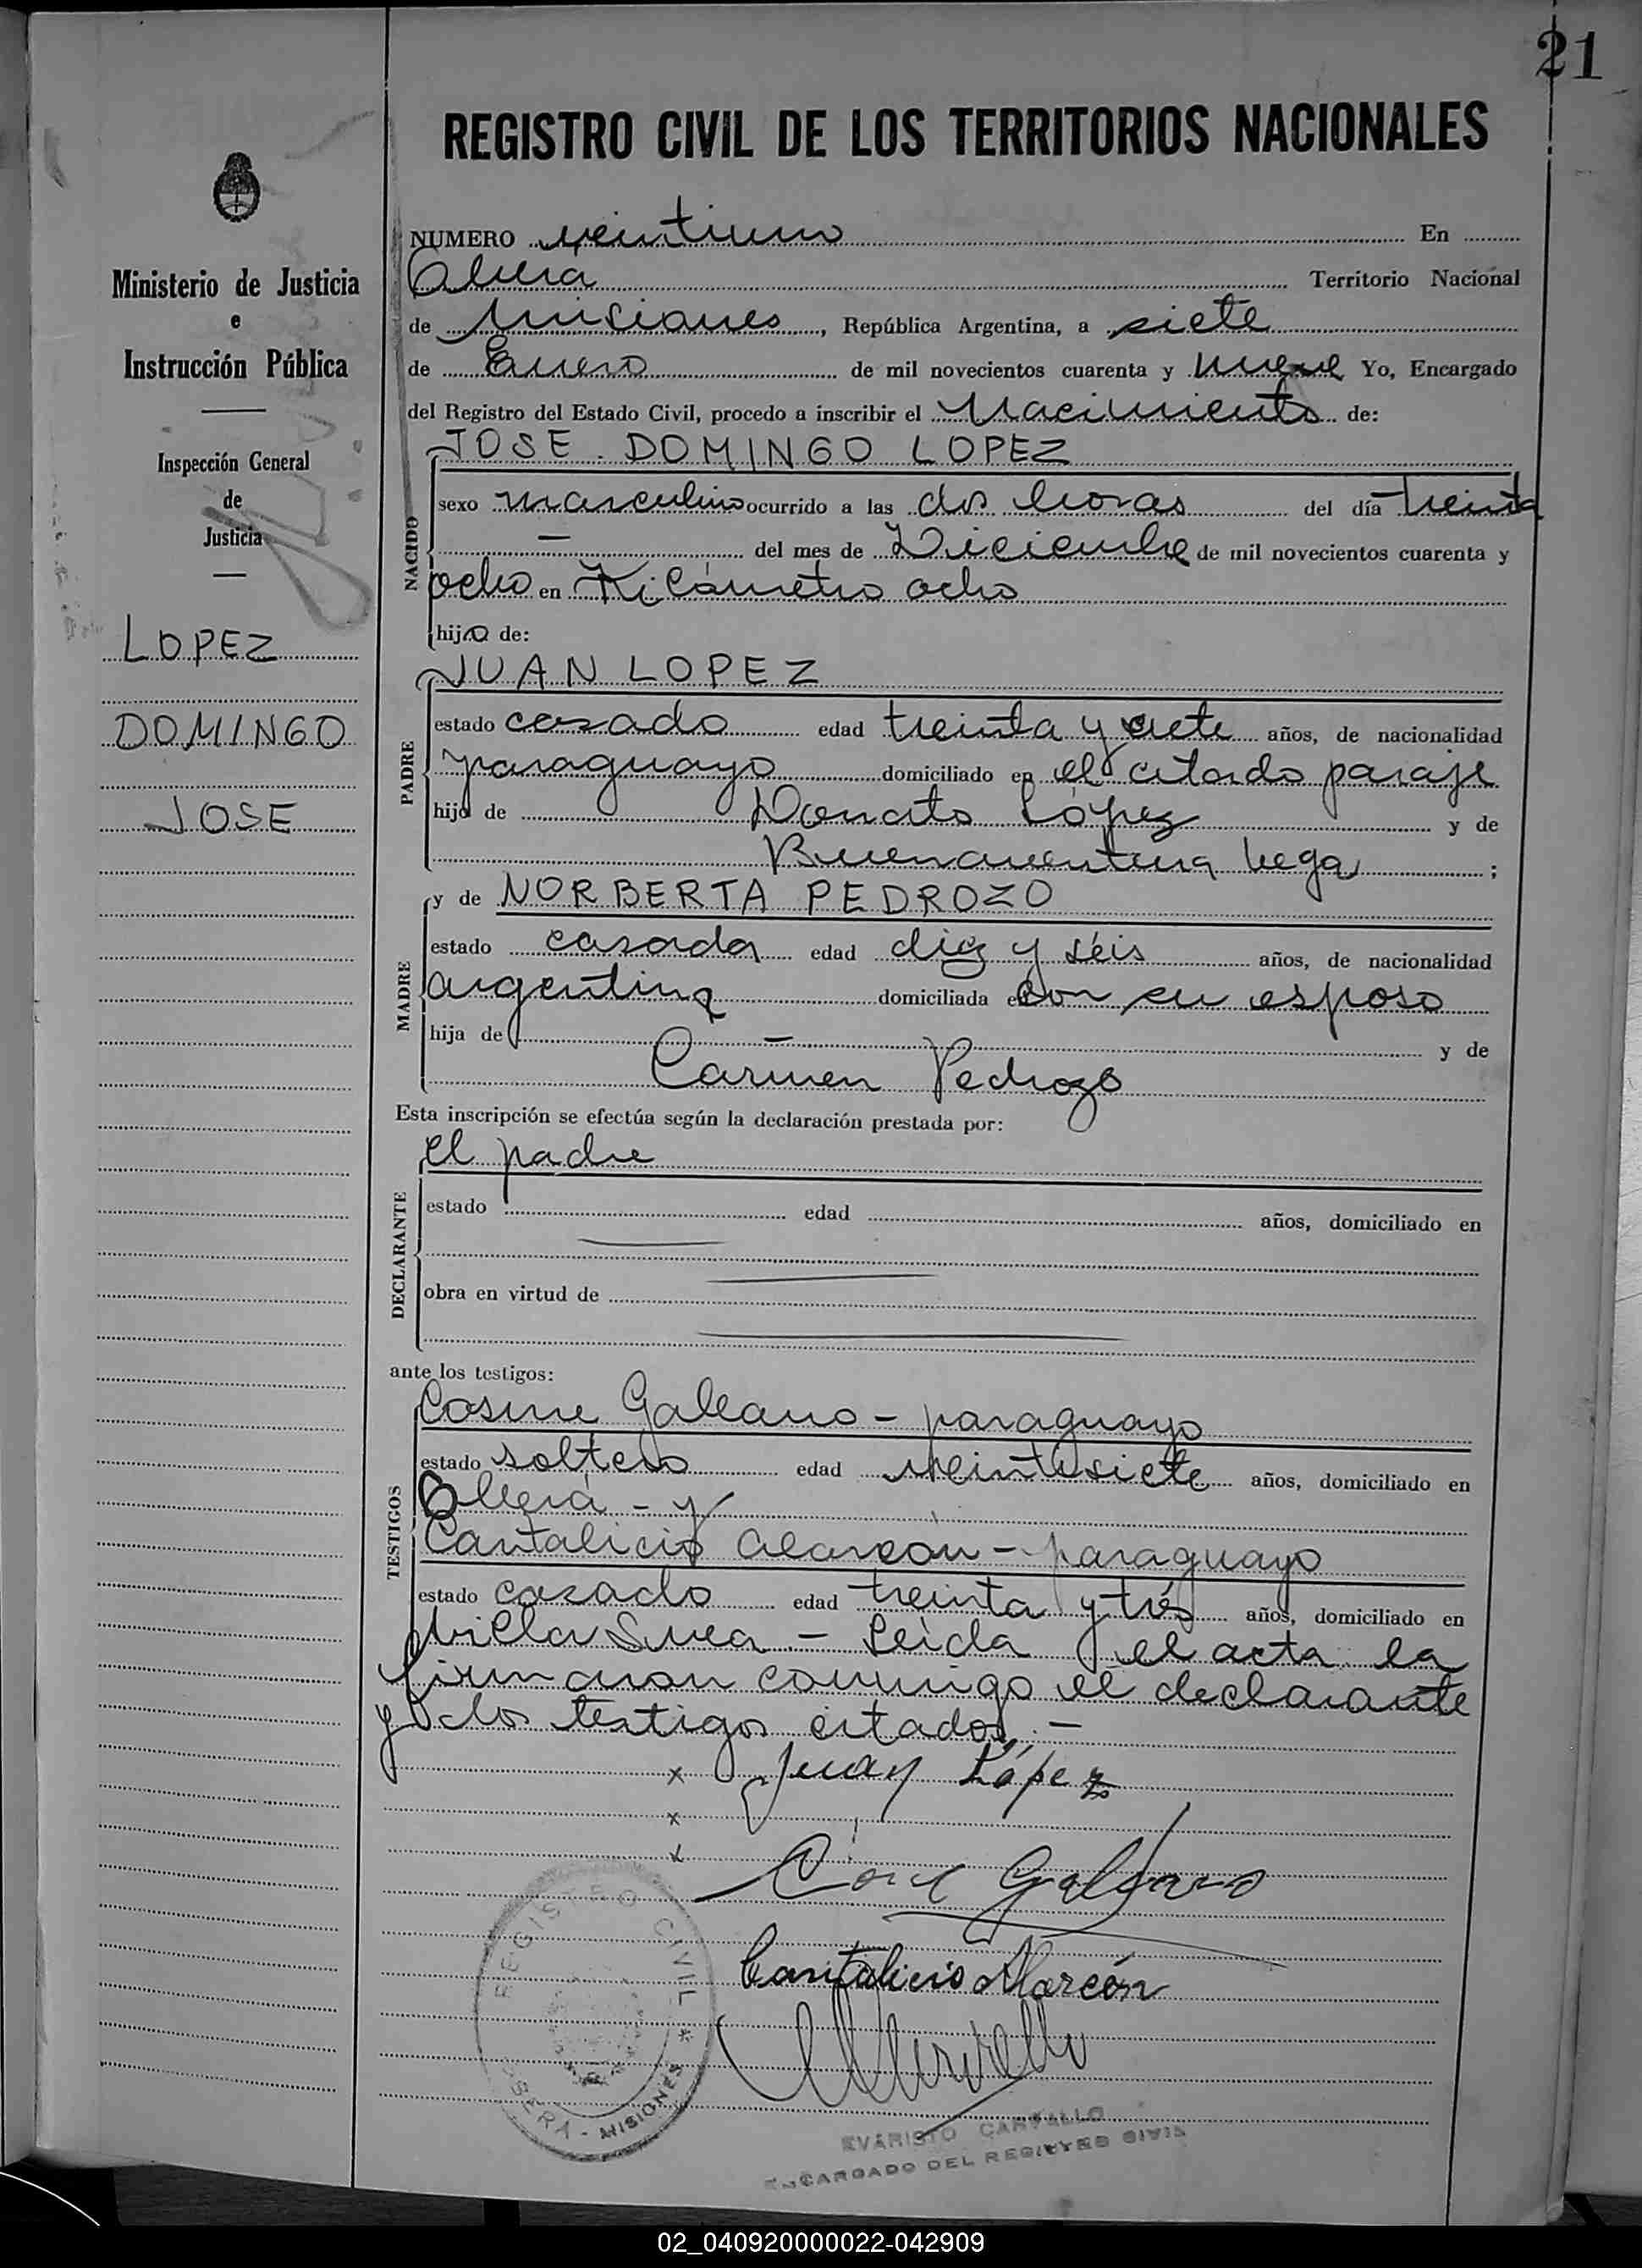 21
REGISTRO CIVIL DE LOS TERRITORIOS NACIONALES
Ministerio de Justicia
e
Instrucción Pública
Inspección General
de
Justicia
LOPEZ
DOMINGO
JOSE
NUMERO veintiuno En
Oberá Territorio Nacional
de Misiones, República Argentina, a siete
de Enero de mil novecientos cuarenta y nueve Yo, Encargado
del Registro del Estado Civil, procedo a inscribir el Nacimiento de:
JOSE DOMINGO LOPEZ
NACIDO
sexo masculino ocurrido a las dos horas del día treinta
— del mes de Diciembre de mil novecientos cuarenta y
ocho en Kilómetro ocho
hijo de:
JUAN LOPEZ
PADRE
estado casado edad treinta y siete años, de nacionalidad
paraguayo domiciliado en el citado paraje
hijo de Donato López y de
Buenaventura Vega ;
y de NORBERTA PEDROZO
MADRE
estado casada edad diez y séis años, de nacionalidad
argentina domiciliada con su esposo
hija de — y de
Carmen Pedrozo
Esta inscripción se efectúa según la declaración prestada por:
el padre
DECLARANTE
estado edad años, domiciliado en
obra en virtud de
ante los testigos:
TESTIGOS
Cosme Galeano - paraguayo
estado soltero edad veintisiete años, domiciliado en
Oberá - y
Cantalicio Alarcón - paraguayo
estado casado edad treinta y trés años, domiciliado en
Villa Svea - Leida el acta la
firmaron conmigo el declarante
y los testigos citados. -
x Juan López
x
x
Galeano
Cantalicio Alarcón
REGISTRO CIVIL
OBERA - MISIONES *
EVARISTO
ENCARGADO DEL REGISTRO CIVIL
02_040920000022-042909